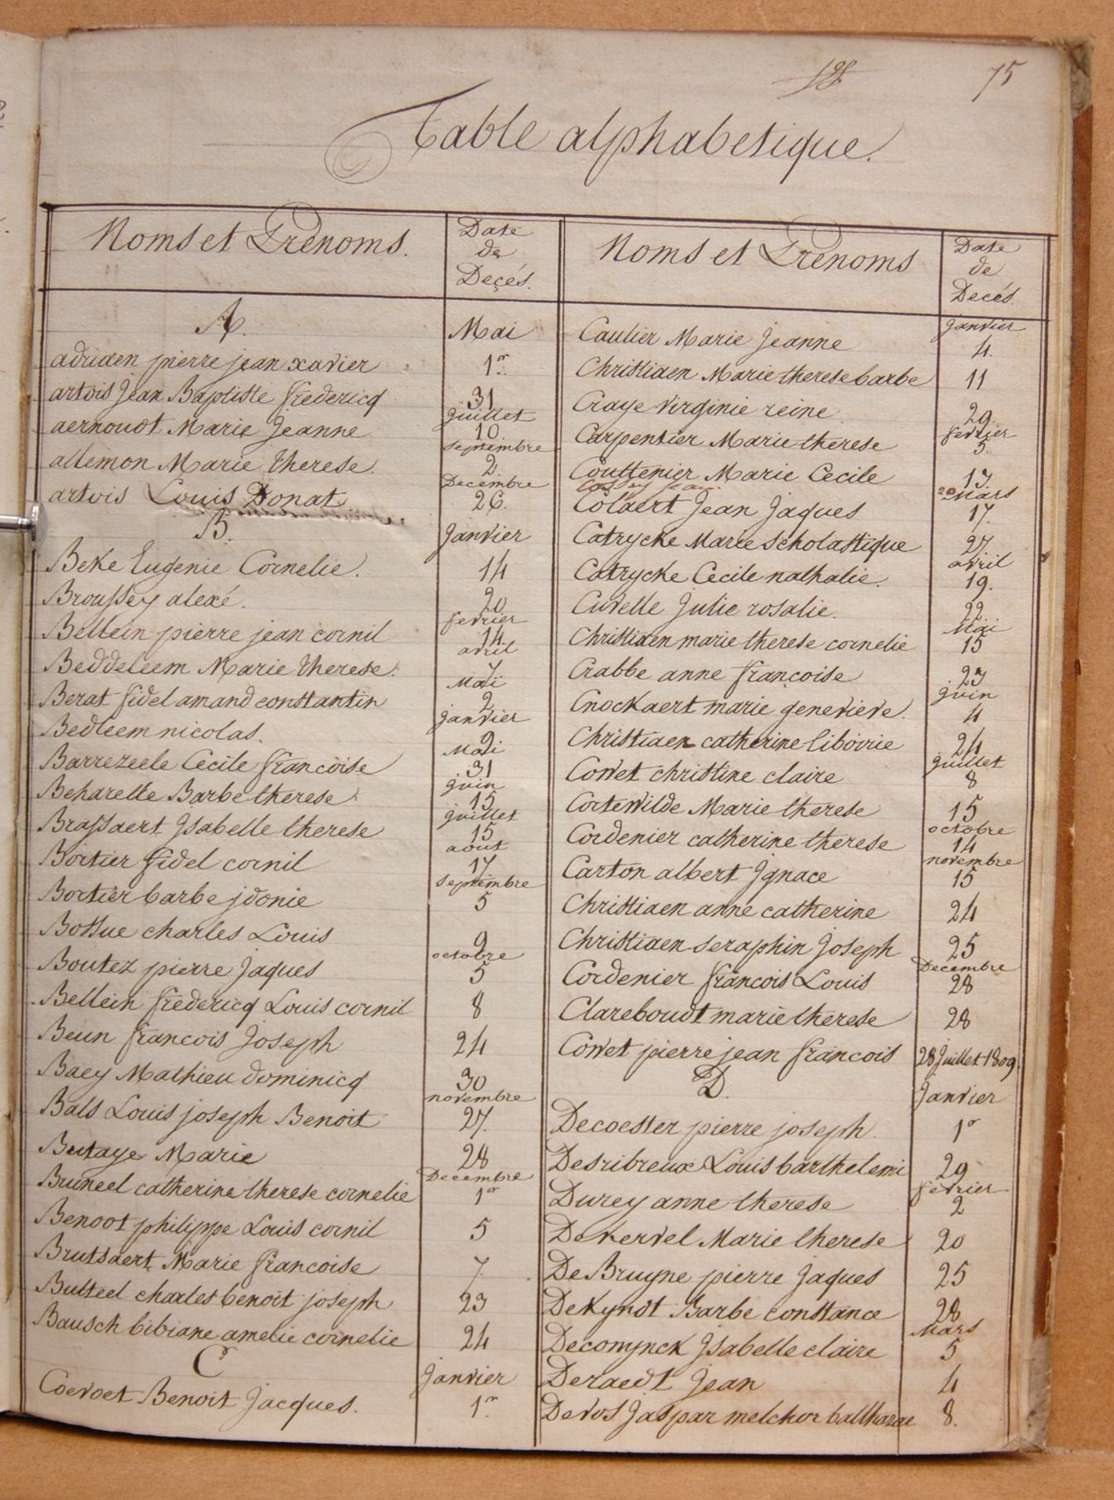 75
Table alphabetique.
Noms et Prénoms.
Date
de
Deçés.
A.
Mai
adriaen pierre jean xavier 1er
artois Jean Baptiste fredericq 31
Juillet
aernoudt Marie Jeanne 10
Septembre
allemon Marie therese 2
Decembre
artois Louis Donat 26
B.
Janvier
Beke Eugenie Cornelie. 14
Broussey alexé. 20
fevrier
Bellein pierre jean cornil 14
avril
Beddeleem Marie therese. 7
Mai
Berat fidel amand constantin 2
janvier
Bedleem nicolas. 9
Mai
Barrezeele Cecile francoise 31
juin
Beharelle Barbe therese 15
juillet
Brassaert Isabelle therese 15
aout
Bortier fidel cornil 17
septembre
Bortier barbe jdonie 5
Bottue charles Louis 9
octobre
Boutez pierre Jaques 5
Bellein fredericq Louis cornil 8
Beun francois Joseph 24
Baey Mathieu dominicq 30
novembre
Bals Louis joseph Benoit 27.
Butaye Marie 28
Decembre
Buineel catherine therese cornelie 1er
Benoot philippe Louis cornil 5
Brutsaert Marie francoise 7
Bulteel charles benoit joseph 23
Bausch bibiane amelie cornelie 24
C
Janvier
Coevoet Benoit Jacques. 1er
Noms et Prénoms
Date
de
Decés.
Janvier
Caulier Marie Jeanne 4.
Christiaen Marie therese barbe 11
Craye virginie reine 29
fevrier
Carpentier Marie therese 5.
Couttenier Marie Cecile 13.
Mars
Colaert Jean Jaques 17.
Catrycke Marie Scholastique 27
avril
Catrycke Cecile nathalie. 19.
Cuvelle Julie rosalie. 22
Mai
Christiaen marie therese cornelie 15
Crabbe anne françoise 23
juin
Cnockaert marie genevieve. 4
Christiaen catherine liboirie 24
Juillet
Corvet christine claire 8
Cortewilde Marie therese 15
octobre
Cordenier catherine therese 14
novembre
Carton albert Ignace 15
Christiaen anne catherine 24
Christiaen seraphin Joseph 25
Decembre
Cordenier francois Louis 28
Clareboudt marie therese 28
Corvet pierre jean francois 28 Juillet 1809.
D.
Janvier
Decoester pierre joseph 1er
Desribreux Louis barthelemi 29
fevrier
Durey anne therese 2
Dekervel Marie therese 20
De Bruyne pierre Jaques 25
DeKyndt Barbe constance 28
Mars
Decomynck Isabelle claire 5
Deraedt Jean 4
Devos Jaspar melchior balthazar 8.